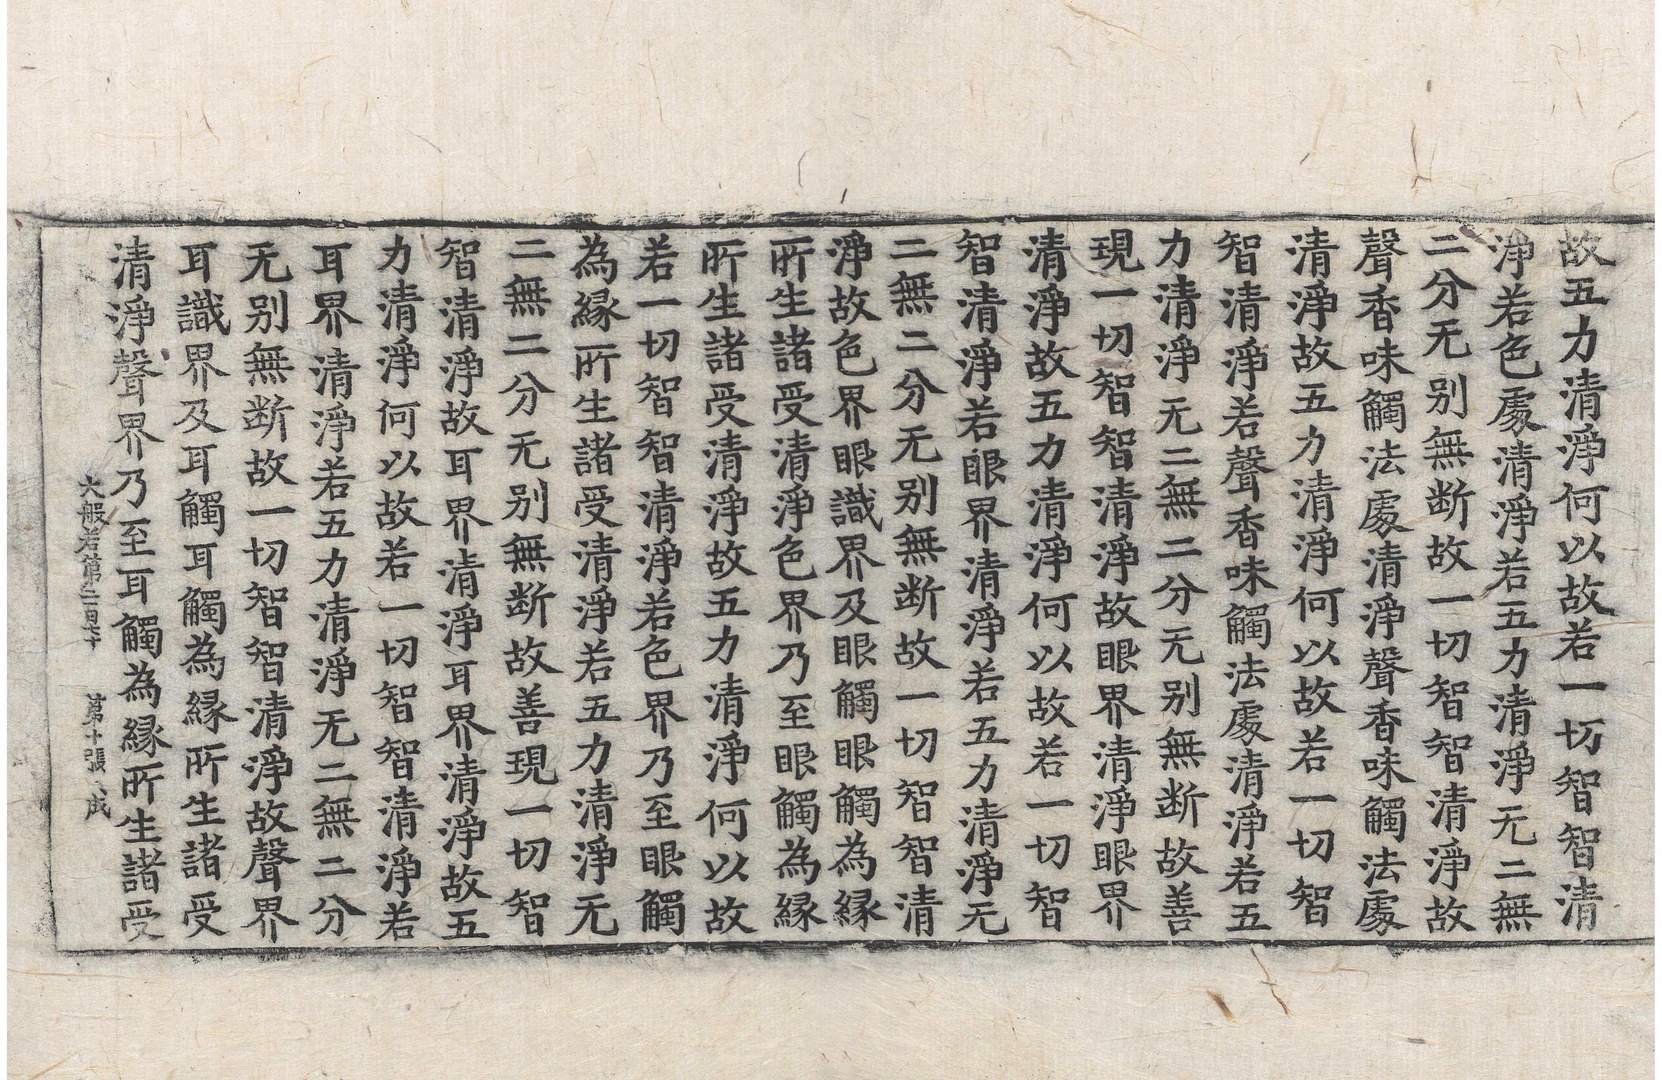 故五力清淨何以故若一切智智清
淨若色處清淨若五力清淨无二無
二分无别無断故一切智智清淨故
聲香味觸法處清淨聲香味觸法處
清淨故五力清淨何以故若一切智
智清淨若聲香味觸法處清淨若五
力清淨无二無二分无别無断故善
現一切智智清淨故眼界清淨眼界
清淨故五力清淨何以故若一切智
智清淨若眼界清淨若五力清淨无
二無二分无别無断故一切智智清
淨故色界眼識界及眼觸眼觸為縁
所生諸受清淨色界乃至眼觸為縁
所生諸受清淨故五力清淨何以故
若一切智智清淨若色界乃至眼觸
為縁所生諸受清淨若五力清淨无
二無二分无别無断故善現一切智
智清淨故耳界清淨耳界清淨故五
力清淨何以故若一切智智清淨若
耳界清淨若五力清淨无二無二分
无别無断故一切智智清淨故聲界
耳識界及耳觸耳觸為縁所生諸受
清淨聲界乃至耳觸為縁所生諸受
大般若第二百六十 第十張 成